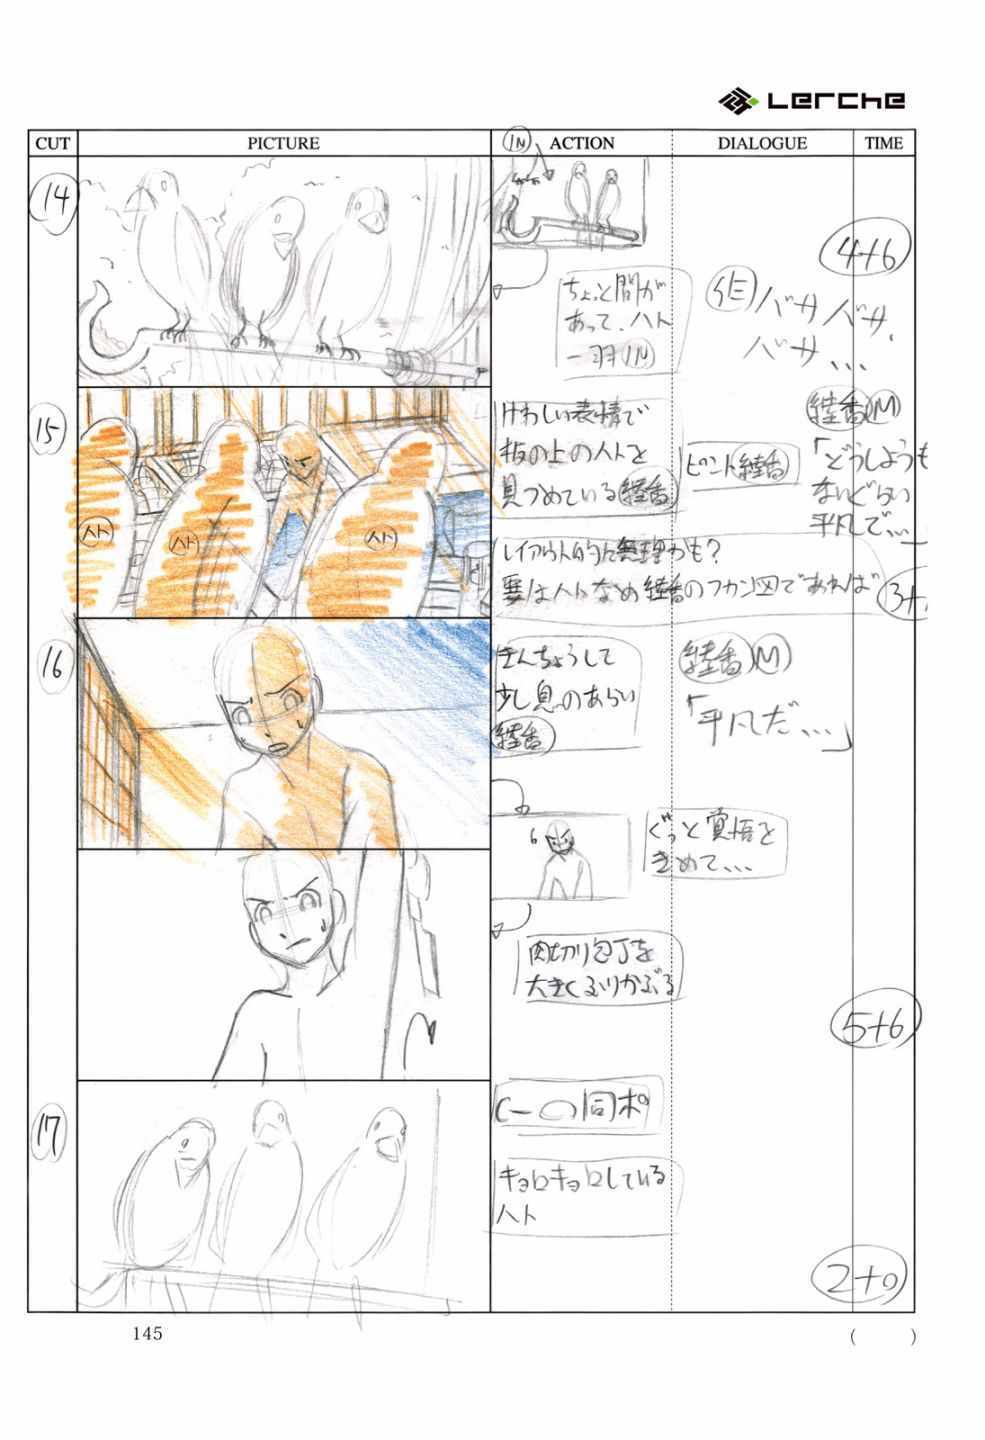 Lerche
CUT
PICTURE
ACTION
DIALOGUE
TIME
14
IN
4+6
ちょっと間が
あって、ハト
一羽IN
バサバサ、
バサ、、、
15
けわしい表情で
板の上のハトを
見つめている
ピント
「どうしようも
ないぐらい
平凡で…」
ハト
ハト
ハト
レイアウト的に無理かも?
要はハトなめ
のフカン図であれば
3+
16
きんちょうして
少し息のあらい
M
「平凡だ、、、」
ぐっと覚悟を
きめて、、、
肉切り包丁を
大きくふりかぶる
5+6
17
の同ポ
キョロキョロしている
ハト
2+0
145
( )